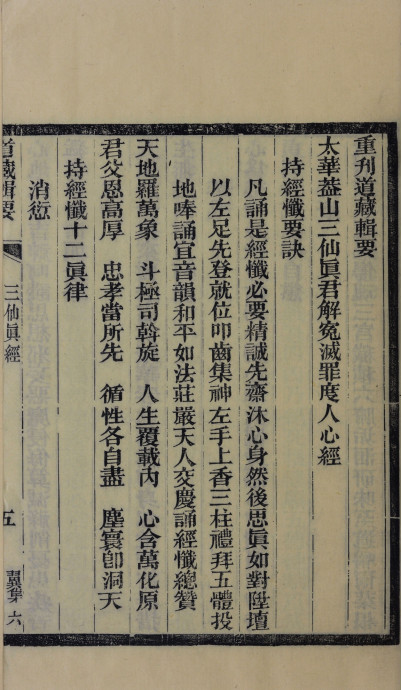 重刊道藏輯要
太華葢山三仙眞君解寃滅罪度人心經
持經懺要訣
凡誦是經懺必要精誠先齋沐心身然後思眞如對陞壇
以左足先登就位叩齒集神左手上香三柱禮拜五體投
地唪誦宣音韻和平如法莊嚴天人交慶誦經懺總贊
天地羅萬象　斗極司斡旋　人生覆載內　心含萬化原
君父恩高厚　忠孝當所先　循性各自盡　塵寰卽洞天
持經懺十二眞律
消愆
道藏輯要　三仙眞經　五　翼集六